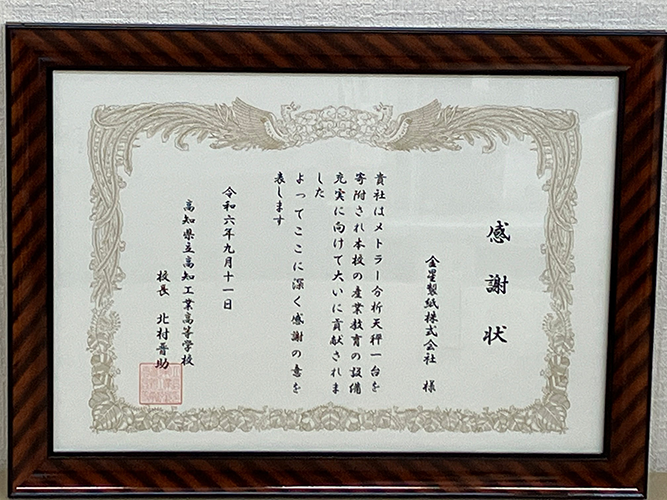 感謝状
金星製紙株式会社 様
貴社はメトラー分析天秤一台を
寄附され本校の産業教育の設備
充実に向けて大いに貢献されま
した
よってここに深く感謝の意を
表します
令和六年九月十一日
高知県立高知工業高等学校
校長 北村晋助